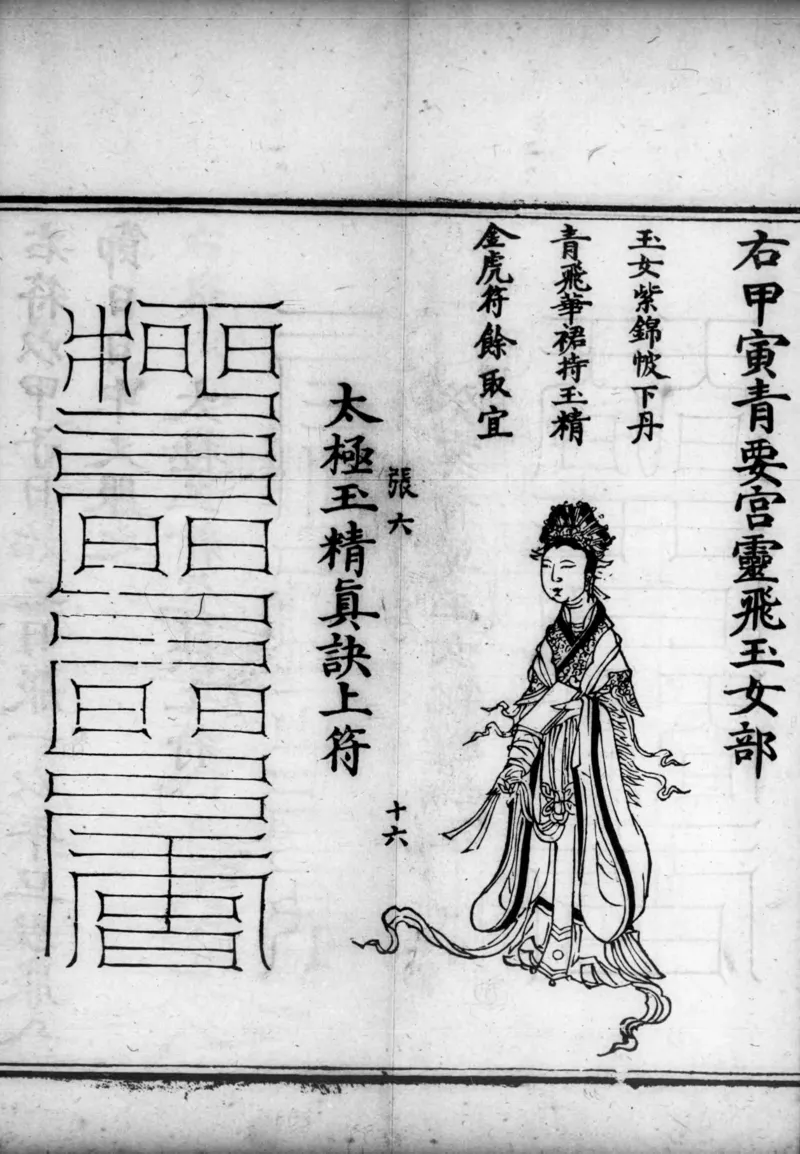 右甲寅青要宮靈飛玉女部
玉女紫錦帔下丹
青飛華裙持玉精
金虎符餘取宜
張六
十六
太極玉精眞訣上符